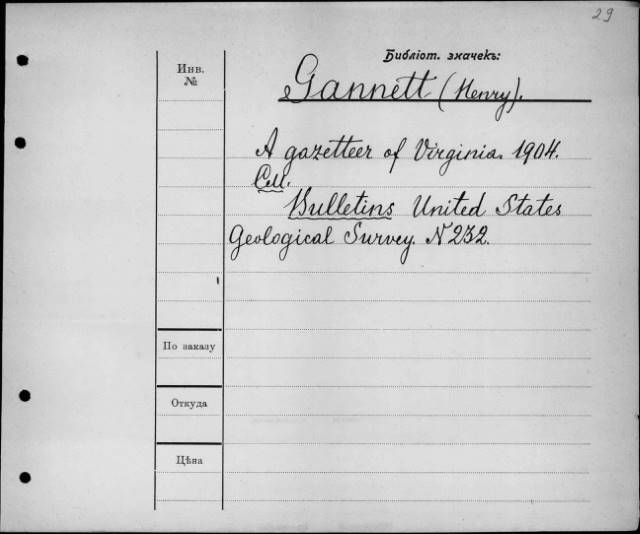 29
Библіот. значекъ:
Инв.
№
Gannett (Henry).
A gazetteer of Virginia. 1904.
См.
Bulletins United States
Geological Survey. N 232.
По заказу
Откуда
Цѣна